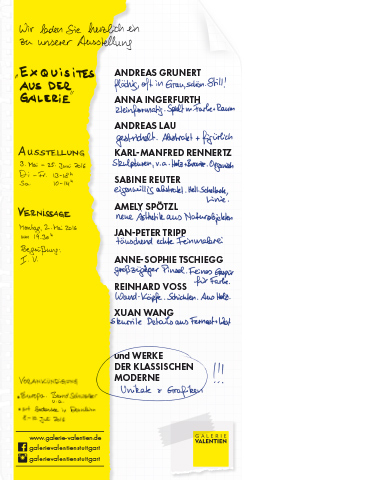 Wir laden Sie herzlich ein
zu unserer Ausstellung
„EXQUISITES
AUS DER
GALERIE“
AUSSTELLUNG
3. Mai – 25. Juni 2016
Di – Fr. 13–18h
Sa. 10–14h
VERNISSAGE
Montag, 2. Mai 2016
um 19.30h
Begrüßung:
I. V.
ANDREAS GRUNERT
flächig, oft in Grau, schön. Still!
ANNA INGERFURTH
Kleinformatig. Spielt m. Farbe + Raum
ANDREAS LAU
gestrichelt. Abstrakt + figürlich
KARL-MANFRED RENNERTZ
Skulpturen, v.a. Holz + Bronze. Organisch
SABINE REUTER
eigenwillig abstrakt. Hell. Schellack,
Linie.
AMELY SPÖTZL
neue Ästhetik aus Naturobjekten
JAN-PETER TRIPP
täuschend echte Feinmalerei
ANNE-SOPHIE TSCHIEGG
großzügiger Pinsel. Feines Gespür
für Farbe.
REINHARD VOSS
Wand-Köpfe. Schichten. Aus Holz.
XUAN WANG
skurrile Details aus
und WERKE
DER KLASSISCHEN
MODERNE
Unikate + Grafiken
!!!
VORANKÜNDIGUNG
www.galerie-valentien.de
galerievalentienstuttgart
galerievalentienstuttgart
GALERIE
VALENTIEN